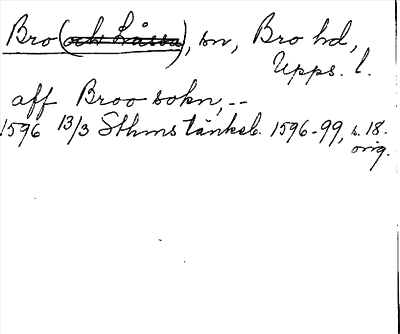 Bro (och Låssa), sn, Bro hd,
Upps. l.
aff Broo sokn, --
1596 13/3 Sthms tänkeb. 1596-99, s. 18.
orig.